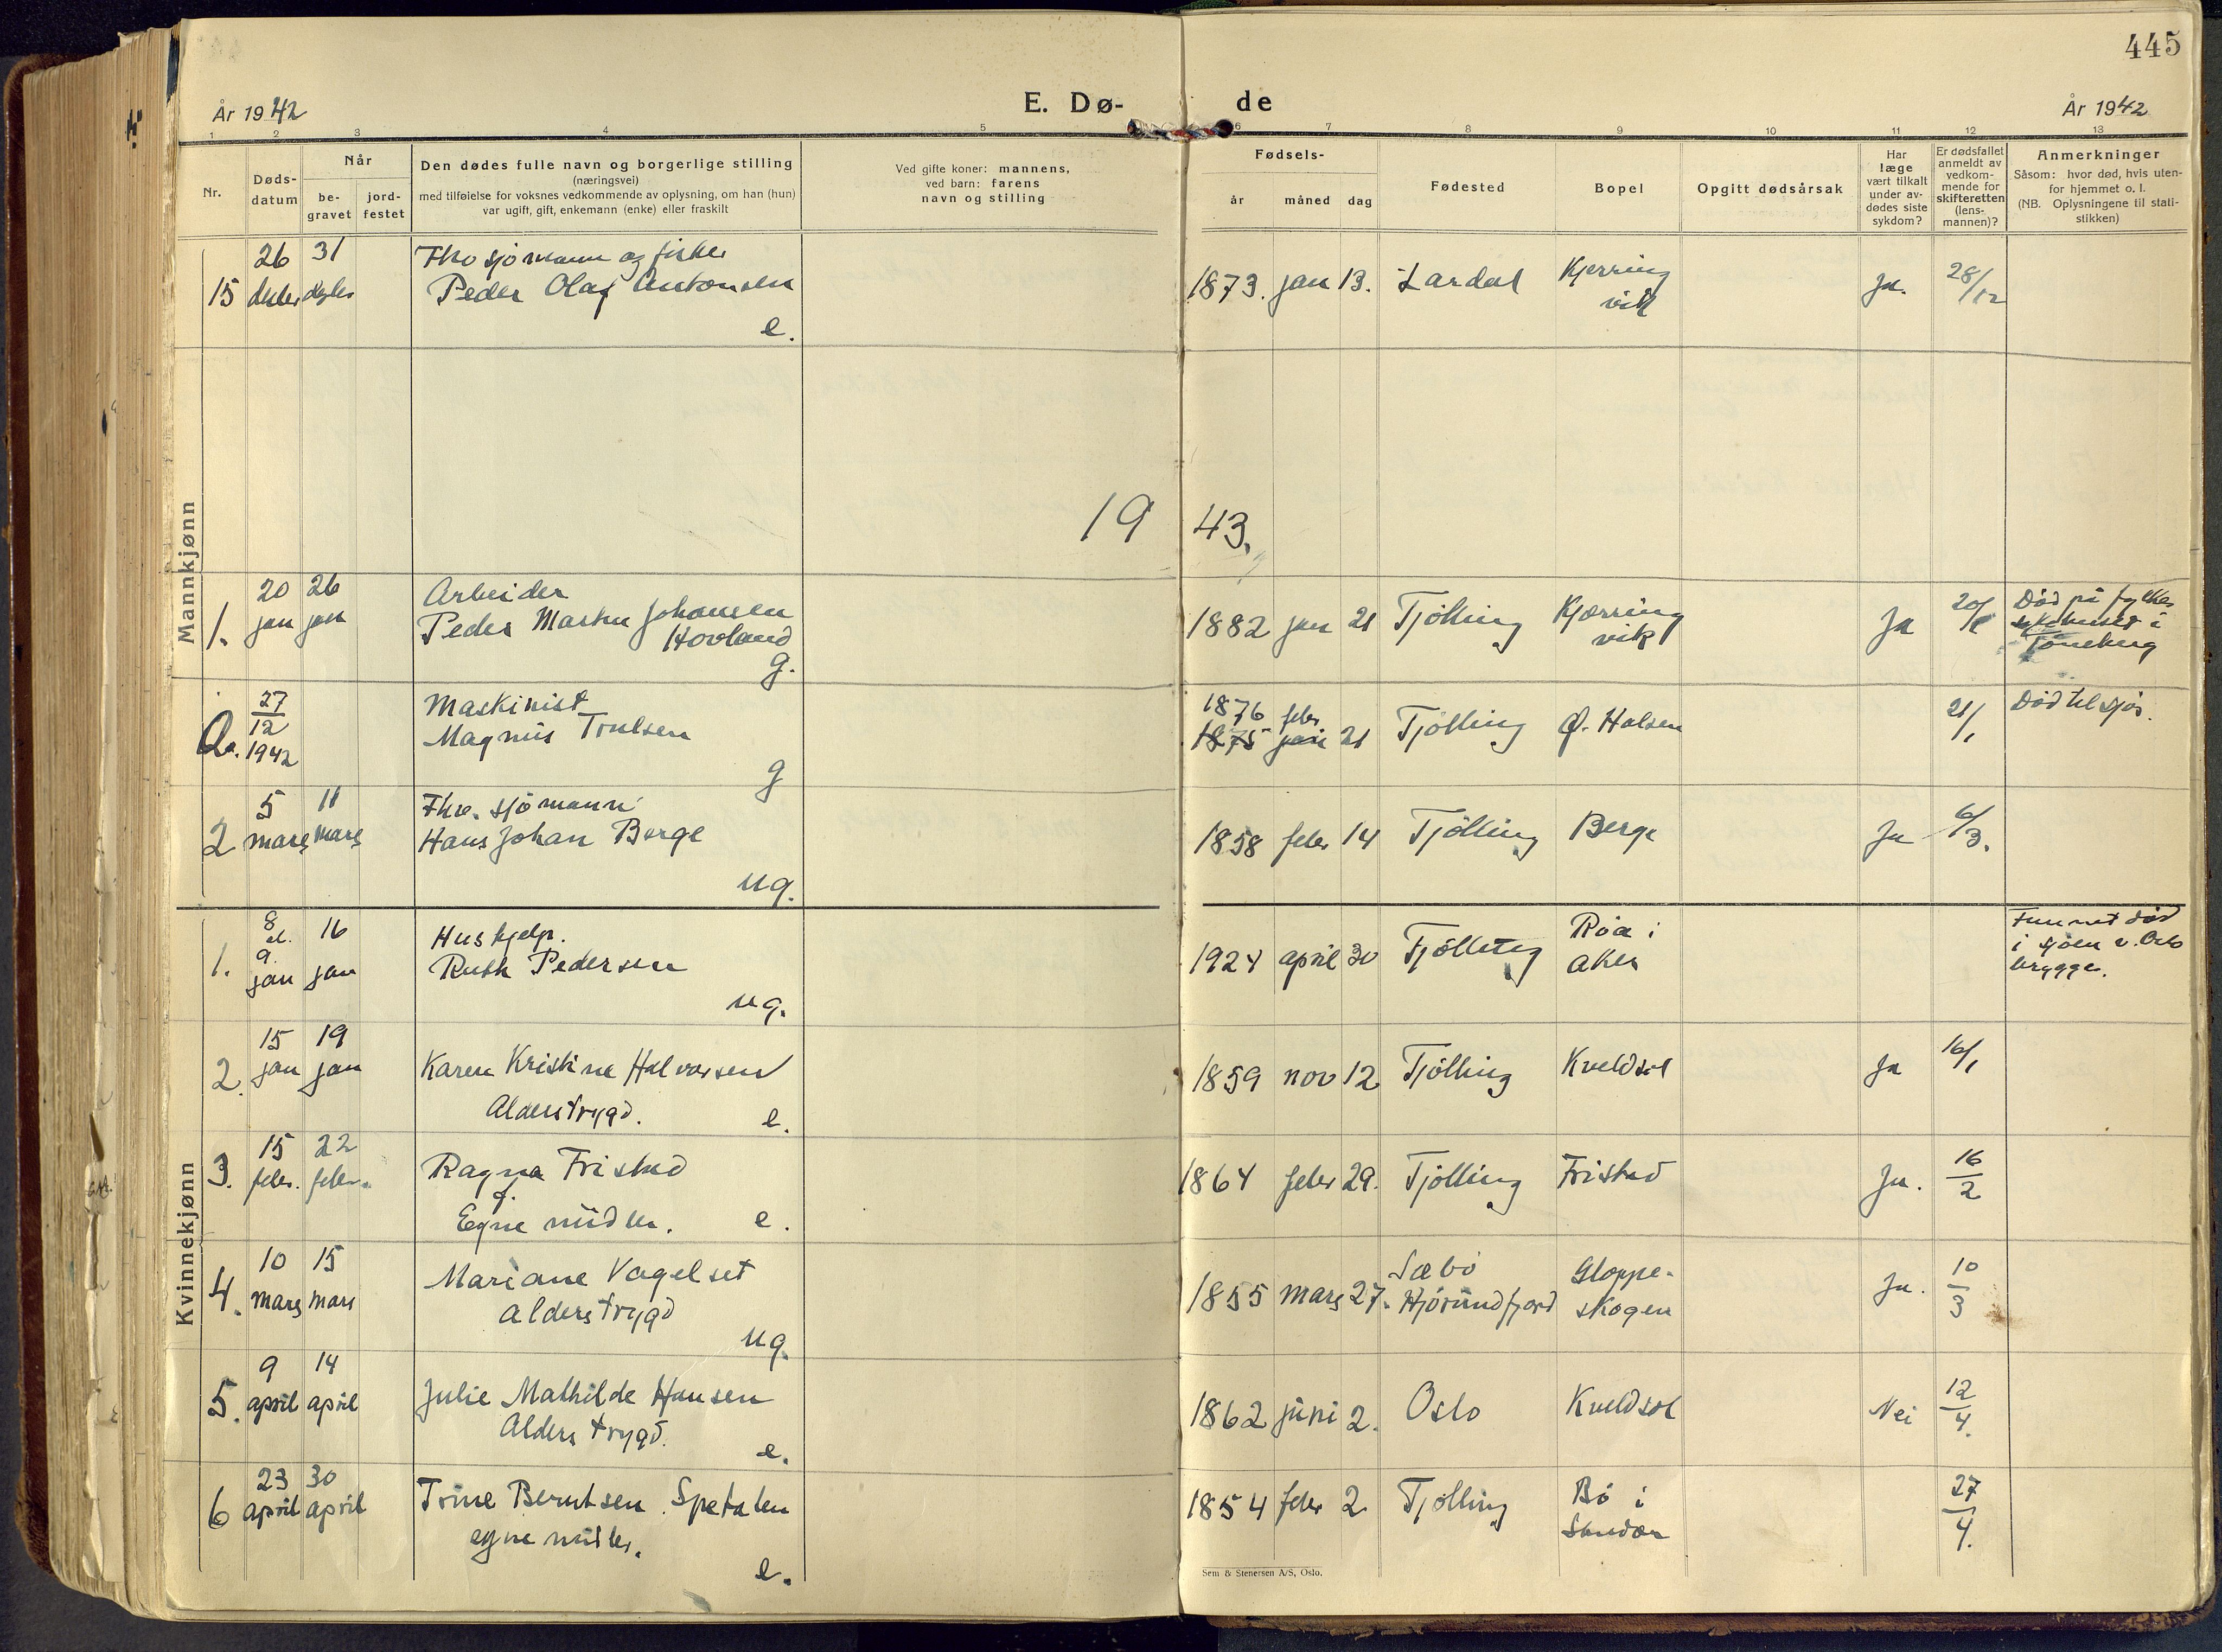 445
År 1942
E. Dø-
de
År 1942
1 2 3 4 5 6 7 8 9 10 11 12 13
Nr.
Døds-
datum
Når
be-
gravet
jord-
festet
Den dødes fulle navn og borgerlige stilling
(næringsvei)
med tilføielse for voksnes vedkommende av oplysning, om han (hun)
var ugift, gift, enkemann (enke) eller fraskilt
Ved gifte koner: mannens,
ved barn: farens
navn og stilling
Fødsels-
år måned dag
Fødested
Bopel
Opgitt dødsårsak
Har
læge
vært tilkalt
under av-
dødes siste
sykdom?
Er dødsfallet
anmeldt av
vedkom-
mende for
skifteretten
(lens-
mannen)?
Anmerkninger
Såsom: hvor død, hvis uten-
for hjemmet o. l.
(NB. Oplysningene til stati-
stikken)
Mannkjønn
15
26 desbr
31 desbr
Fhv sjømann og fisker
Peder Olaf Antonsen
e.
1873. jan 13.
Lardal
Kjerring
vik
Ja.
28/12
19 43.
1.
20 jan
26 jan
Arbeider
Peder Martin Johansen
Hovland
g.
1882 jan 21
Tjølling
Kjærring
vik
Ja
20/1
Død på fylkes
sykehuset i
Tønsberg
a.
27
12
1942
Maskinist
Magnus Trulsen
g
1876 febr
1875 jan 21
Tjølling
Ø. Halsen
21/1
Død til sjøs.
2
5 mars
11 mars
Fhv. sjømann
Hans Johan Berge
ug.
1858 febr 14
Tjølling
Berge
Ja
6/3.
Kvinnekjønn
1.
8
el.
9.
jan
16 jan
Hushjelp.
Ruth Pedersen
ug.
1924 april 30
Tjølling
Røa i
Aker
Funnet død
i sjøen v. Oslo
brygge.
2.
15 jan
19 jan
Karen Kristine Halvorsen
Alderstrygd.
e.
1859 nov 12
Tjølling
Kveldsol
Ja
16/1
3.
15 febr.
22 febr.
Ragna Fristad
Egne midler.
e.
1864 febr 29.
Tjølling
Fristad
Ja.
16
2
4.
10 mars
15 mars
Mariane Vagelset
Alderstrygd
ug.
1855 mars 27.
Sæbø
Hjørundfjord
Gloppe-
skogen
Ja.
10
3
5.
9 april
14 april
Julie Mathilde Hansen
Alderstrygd.
e.
1862 juni 2.
Oslo
Kveldsol
Nei
12
4.
6
23 april
30 april
Trine Berntsen Spetalen
egne midler.
e.
1854 febr 2
Tjølling
Bø i
Sandar
27
4.
Sem & Stenersen A/S, Oslo.